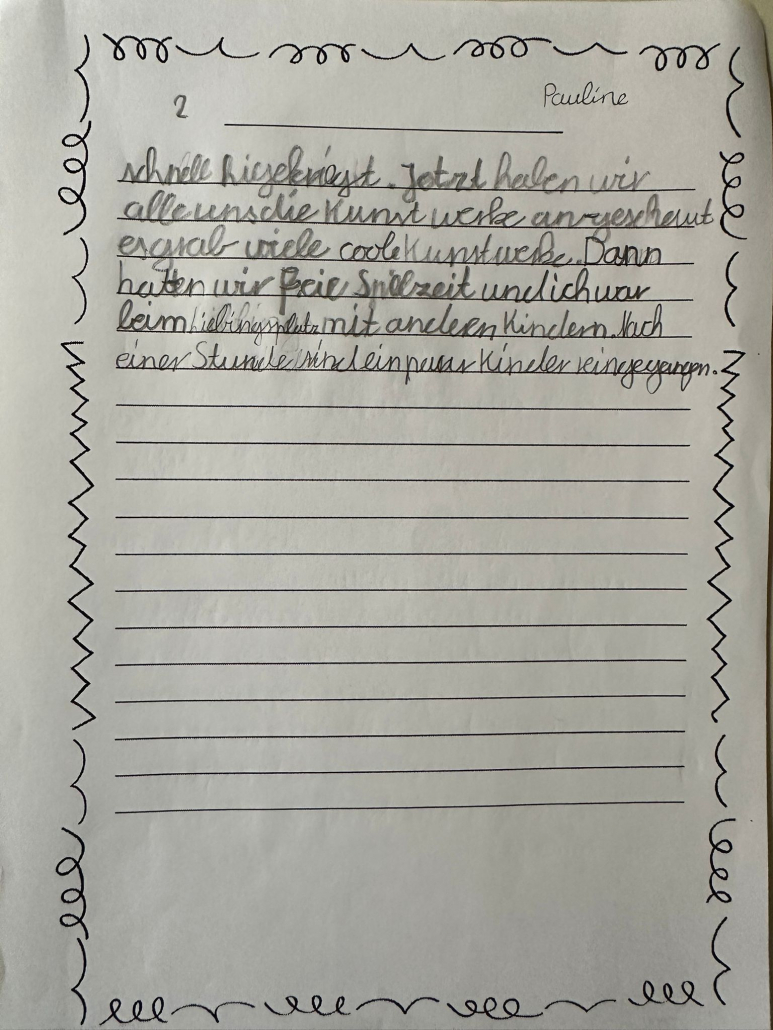 2
Pauline
schnell higekriegt. Jetzt haben wir
alle uns die Kunst werke angeschaut
es gab viele coole Kunstwerke. Dann
hatten wir Freie Spilzeit und ich war
beim Lieblingsplatz mit anderen Kindern. Nach
einer Stunde sind ein paar Kinder reingegangen.